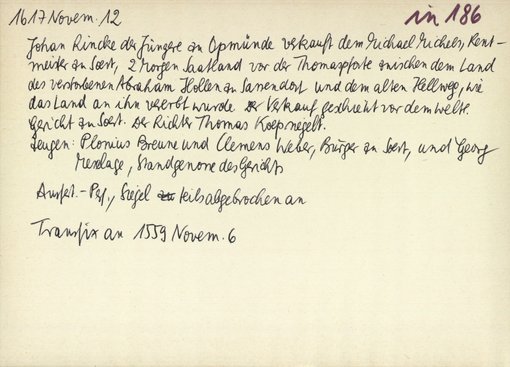 1617 Novem. 12
in 186
Johan Rincke der Jüngere zu Opmünde verkauft dem Michael Michels, Rent-
meister zu Soest, 2 Morgen Saatland vor der Thomaspforte zwischen dem Land
des verstorbenen Abraham Hollen zu Sassendorf und dem alten Hellweg, wie
das Land an ihn vererbt wurde. Der Verkauf geschieht vor dem weltl.
Gericht zu Soest. Der Richter Thomas Koep siegelt.
Zeugen: Plonius Breune und Clemens Weber, Bürger zu Soest, und Georg
Mexlage, Standgenosse des Gerichts
Ausfert.-Perg., Siegel teils abgebrochen an
Transfix an 1559 Novem. 6